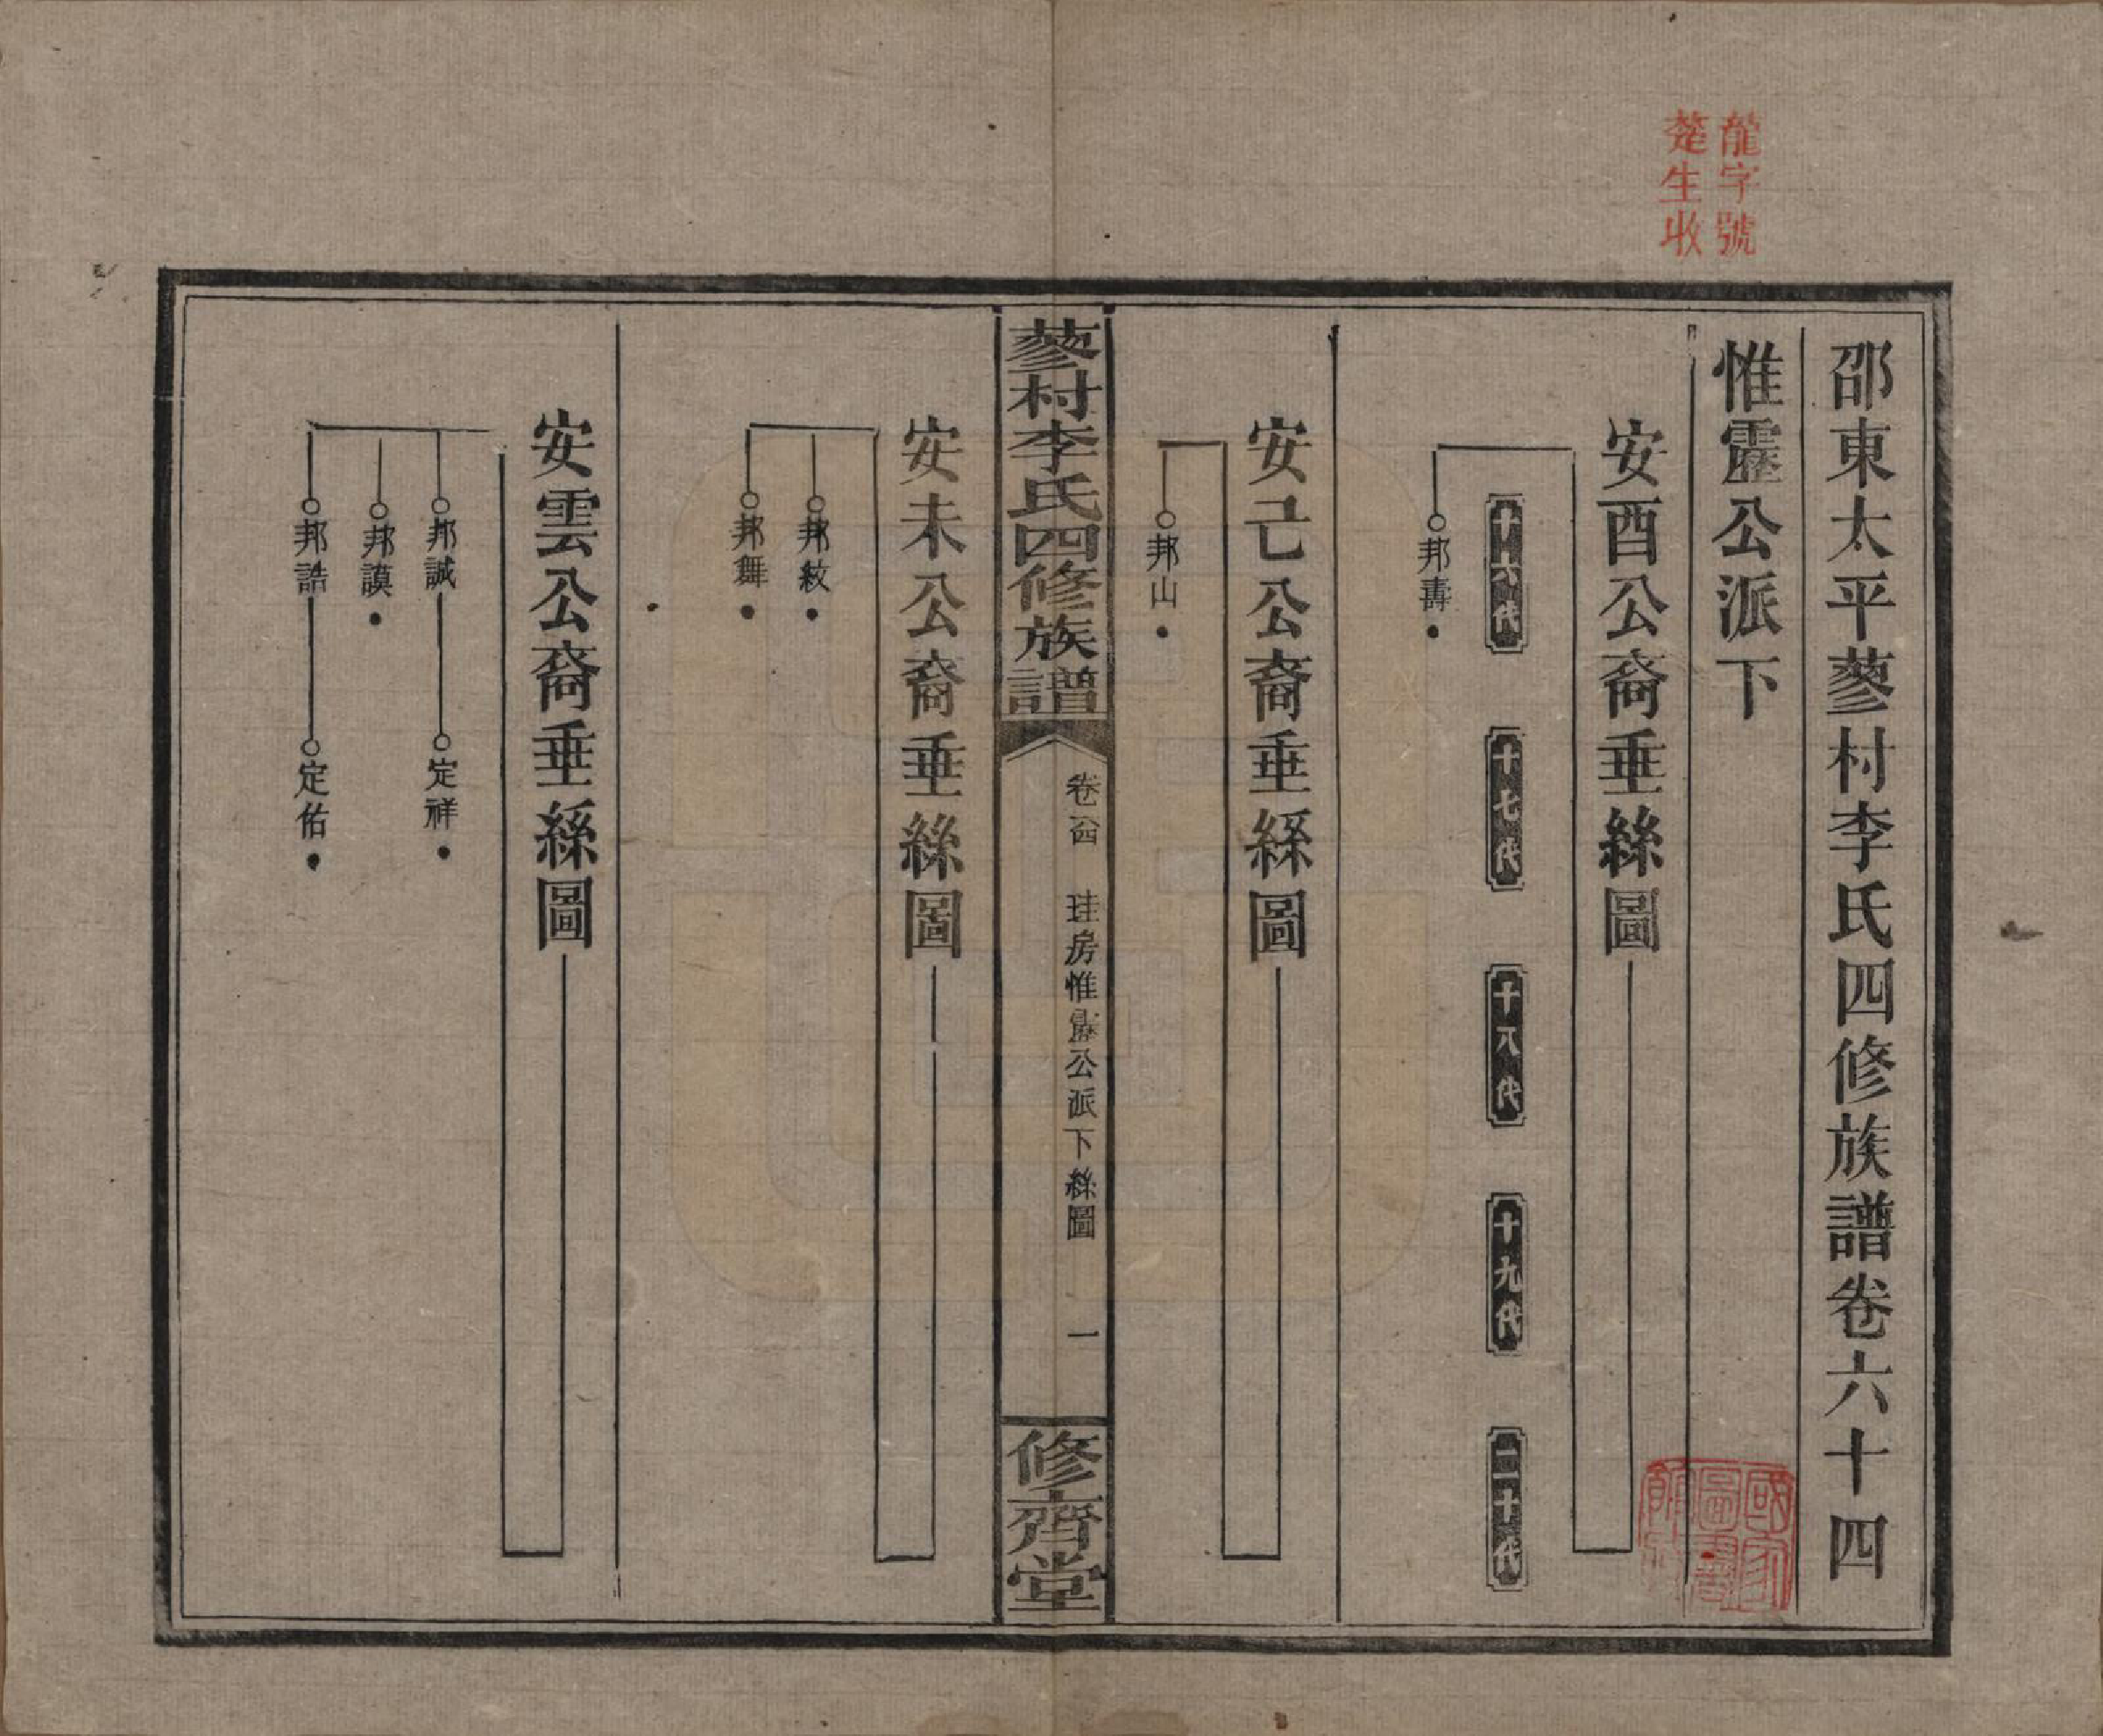 龍字號
楚生收
邵東太平蓼村李氏四修族譜卷六十四
惟靂公派下
安酉公裔垂絲圖
十六代
十七代
十八代
十九代
二十代
邦壽
安己公裔垂絲圖
邦山
蓼村李氏四修族譜
卷六十四 珪房惟靂公派下絲圖 一
修齊堂
安未公裔垂絲圖
邦紋
邦舞
安雲公裔垂絲圖
邦誠 定祥
邦謨
邦誥 定佑